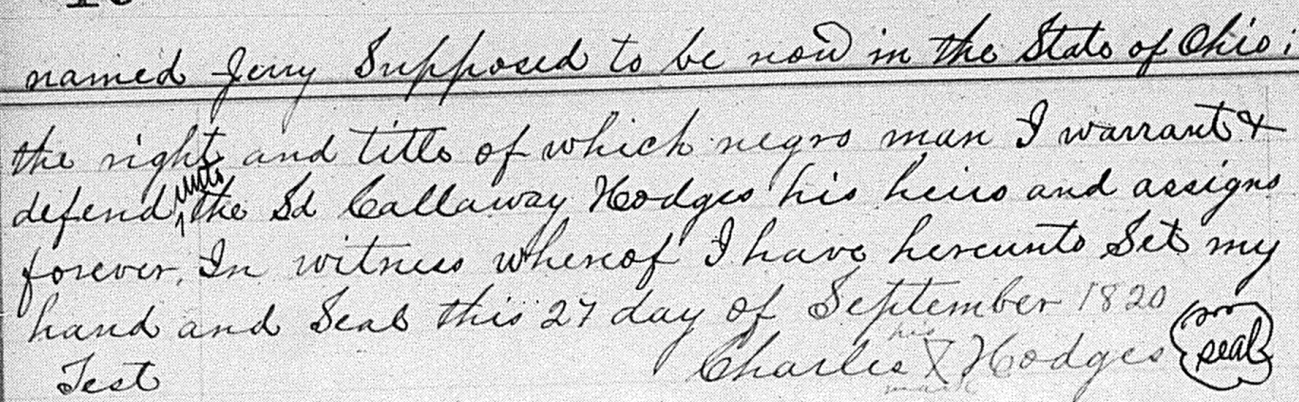 named Jerry Supposed to be now in the State of Ohio;
the right and title of which negro man I warrant &
defend unto the Sd Callaway Hodges his heirs and assigns
forever. In witness whereof I have hereunto Set my
hand and Seal this 27 day of September 1820
his
Test Charles X Hodges seal
mark